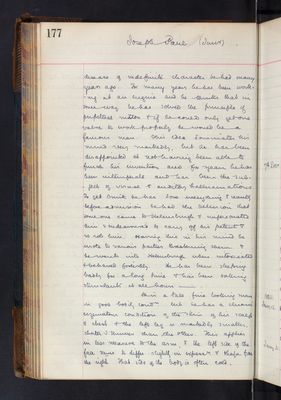 177
Joseph
disease of indefinite character he had many
years ago. For many years he has been work-
ing at an engine and he thinks that in
some way he has solved the principle of
perpetual motion & if he could only get one
valve to work properly he would be a
famous man. This idea dominates his
mind very markedly, but he has been
disappointed at not having been able to
finish his invention, and for years he has
been intemperate and has been the sub-
ject of visual & auditory hallucinations.
before admission he had the delusion that
someone came to Edinburgh & impersonated
him & endeavoured to carry off his patent &
to rob him. Having this in his mind he
wrote to various parties threatening them &
he went into Edinburgh when intoxicated
& behaved foolishly. He has been sleeping
badly for a long time & has been taking
stimulants at all hours
Is in a fine looking man
in good bodily cond. but he has a chronic
condition of the skin of his scalp
& chest & the left leg is markedly smaller,
shorter & thinner than the other. This applies
in less measure to the arm, & the left side of the
face seems to differ slightly in expression & shape from
the right. That side of the body is often cold.